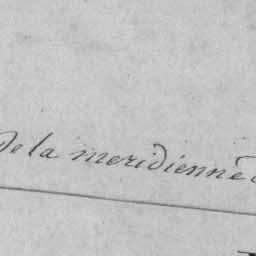 De la meridienne